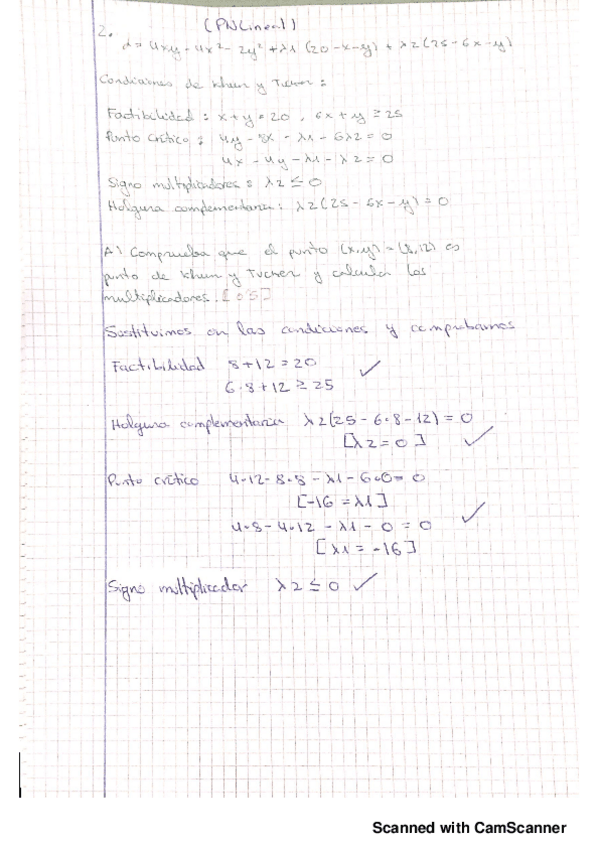 2. (PNLineal)
L = 4xy - 4x² - 2y² + λ1 (20-x-y) + λ2 (25-6x-y)
Condiciones de Khun y Tucher:
Factibilidad: x+y=20, 6x+y≥25
Punto crítico: 4y - 8x - λ1 - 6λ2 = 0
4x - 4y - λ1 - λ2 = 0
Signo multiplicadores: λ2 ≤ 0
Holgura complementaria: λ2(25-6x-y) = 0
A) Comprueba que el punto (x,y) = (8,12) es
punto de Khun y Tucher y calcula los
multiplicadores. [0'5]
Sustituimos en las condiciones y comprobamos
Factibilidad 8+12=20 ✓
6·8+12 ≥ 25
Holgura complementaria λ2(25-6·8-12) = 0
[λ2=0] ✓
Punto crítico 4·12-8·8-λ1-6·0=0
[-16=λ1]
4·8-4·12-λ1-0=0 ✓
[λ1=-16]
Signo multiplicador λ2 ≤ 0 ✓
Scanned with CamScanner